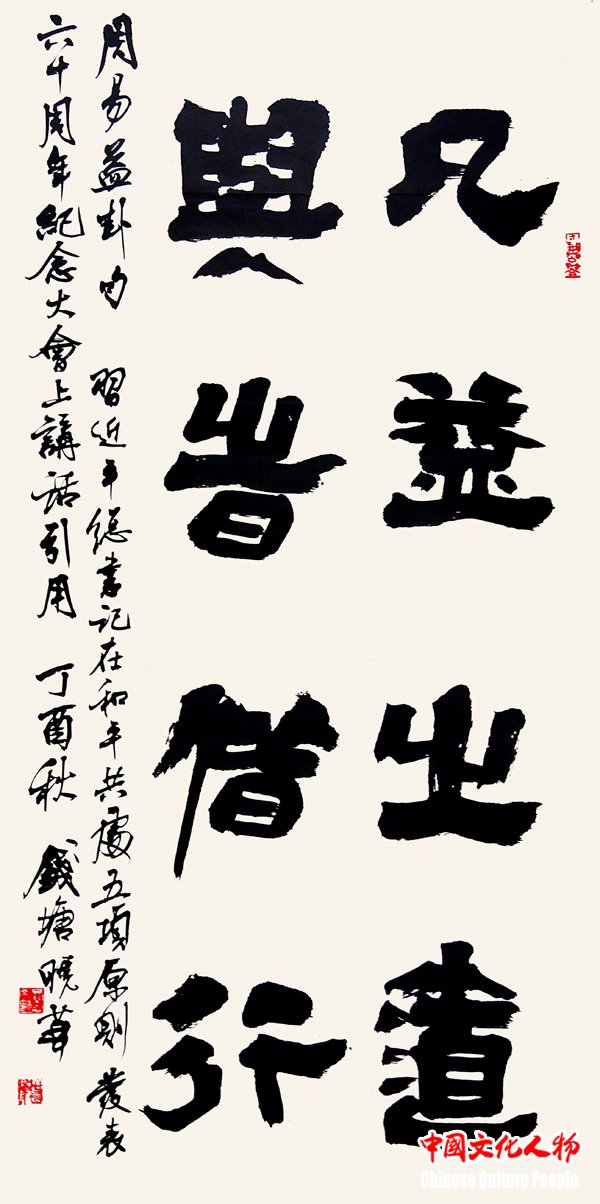 凡益之道
與旹偕行
周易益卦句 習近平總書記在和平共處五項原則發表
六十周年紀念大會上講話引用 丁酉秋 錢塘曉
中國文化人物
Chinese Culture People